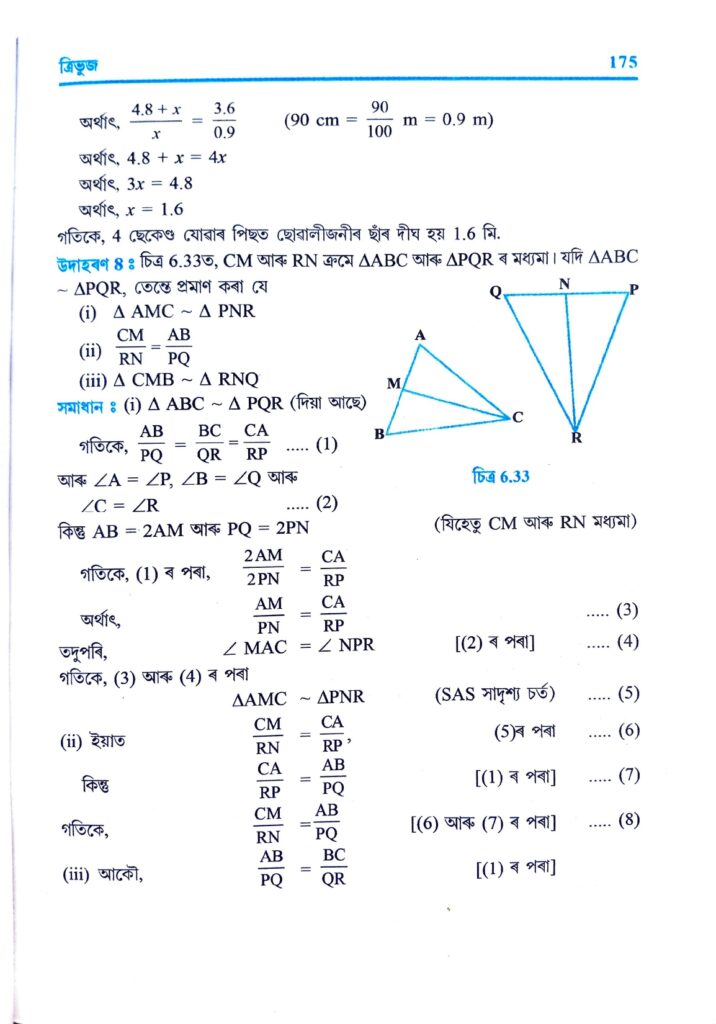 ত্ৰিভুজ 175
অৰ্থাৎ, (4.8 + x)/x = 3.6/0.9 (90 cm = 90/100 m = 0.9 m)
অৰ্থাৎ, 4.8 + x = 4x
অৰ্থাৎ, 3x = 4.8
অৰ্থাৎ, x = 1.6
গতিকে, 4 ছেকেণ্ড যোৱাৰ পিছত ছোৱালীজনীৰ ছাঁৰ দীঘ হয় 1.6 মি.
উদাহৰণ 8 : চিত্ৰ 6.33ত, CM আৰু RN ক্ৰমে ΔABC আৰু ΔPQR ৰ মধ্যমা। যদি ΔABC
~ ΔPQR, তেন্তে প্ৰমাণ কৰা যে
(i) Δ AMC ~ Δ PNR
(ii) CM/RN = AB/PQ
(iii) Δ CMB ~ Δ RNQ
Q N P
A
M
B
C
R
চিত্ৰ 6.33
সমাধান : (i) Δ ABC ~ Δ PQR (দিয়া আছে)
গতিকে, AB/PQ = BC/QR = CA/RP ..... (1)
আৰু ∠A = ∠P, ∠B = ∠Q আৰু
∠C = ∠R ..... (2)
কিন্তু AB = 2AM আৰু PQ = 2PN (যিহেতু CM আৰু RN মধ্যমা)
গতিকে, (1) ৰ পৰা, 2AM/2PN = CA/RP
অৰ্থাৎ, AM/PN = CA/RP ..... (3)
তদুপৰি, ∠ MAC = ∠ NPR [(2) ৰ পৰা] ..... (4)
গতিকে, (3) আৰু (4) ৰ পৰা
ΔAMC ~ ΔPNR (SAS সাদৃশ্য চৰ্ত) ..... (5)
(ii) ইয়াত CM/RN = CA/RP, (5)ৰ পৰা ..... (6)
কিন্তু CA/RP = AB/PQ [(1) ৰ পৰা] ..... (7)
গতিকে, CM/RN = AB/PQ [(6) আৰু (7) ৰ পৰা] ..... (8)
(iii) আকৌ, AB/PQ = BC/QR [(1) ৰ পৰা]